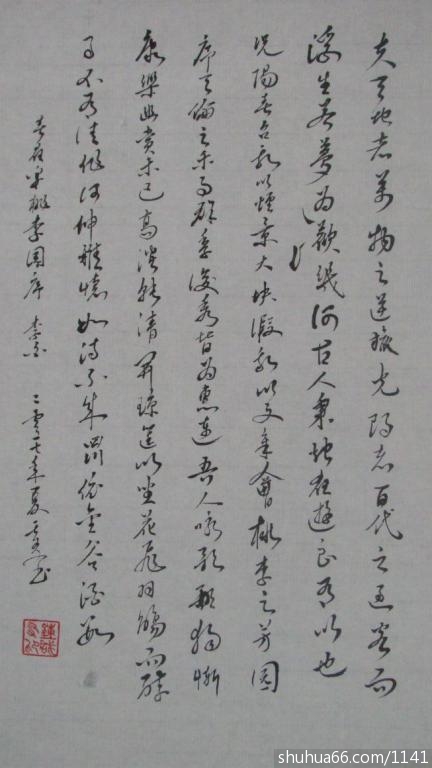 夫天地者萬物之逆旅光陰者百代之過客而
浮生若夢为歡幾何古人秉烛夜遊良有以也
况陽春召我以煙景大块假我以文章會桃李之芳園
序天倫之乐事群季俊秀皆为惠連吾人咏歌獨慚
康樂幽賞未已高談转清開琼筵以坐花飛羽觴而醉
月不有佳作何伸雅懷如诗不成罰依金谷酒数
春夜宴桃李園序 李白 二零一七年夏
shuhua66.com/1141